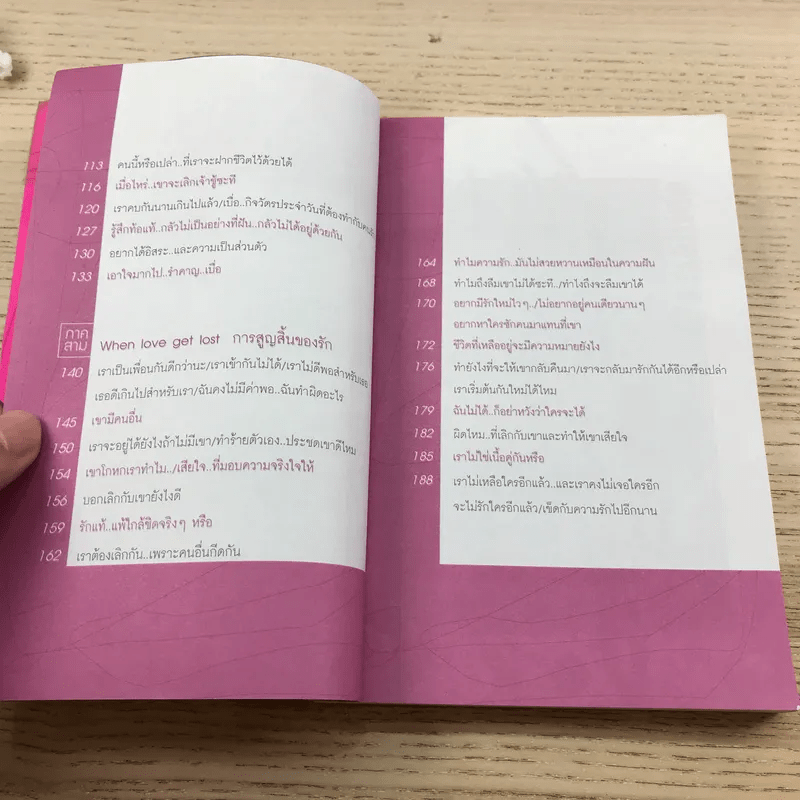 113 คนนี้หรือเปล่า..ที่เราจะฝากชีวิตไว้ด้วยได้
116 เมื่อไหร่..เขาจะเลิกเจ้าชู้ซะที
120 เราคบกันนานเกินไปแล้ว/เบื่อ..กิจวัตรประจำวันที่ต้องทำกับคน
127 รู้สึกท้อแท้..กลัวไม่เป็นอย่างที่ฝัน..กลัวไม่ได้อยู่ด้วยกัน
130 อยากได้อิสระ..และความเป็นส่วนตัว
133 เอาใจมากไป..รำคาญ..เบื่อ
ภาค
สาม
When love get lost การสูญสิ้นของรัก
140 เราเป็นเพื่อนกันดีกว่านะ/เราเข้ากันไม่ได้/เราไม่ดีพอสำหรับเธอ
เธอดีเกินไปสำหรับเรา/ฉันคงไม่มีค่าพอ..ฉันทำผิดอะไร
145 เขามีคนอื่น
150 เราจะอยู่ได้ยังไงถ้าไม่มีเขา/ทำร้ายตัวเอง..ประชดเขาดีไหม
154 เขาโกหกเราทำไม../เสียใจ..ที่มอบความจริงใจให้
156 บอกเลิกกับเขายังไงดี
159 รักแท้..แพ้ใกล้ชิดจริงๆ หรือ
162 เราต้องเลิกกัน..เพราะคนอื่นกีดกัน
164 ทำไมความรัก..มันไม่สวยหวานเหมือนในความฝัน
168 ทำไมถึงลืมเขาไม่ได้ซะที../ทำไงถึงจะลืมเขาได้
170 อยากมีรักใหม่ไวๆ../ไม่อยากอยู่คนเดียวนานๆ
อยากหาใครซักคนมาแทนที่เขา
172 ชีวิตที่เหลืออยู่จะมีความหมายยังไง
176 ทำยังไงที่จะให้เขากลับคืนมา/เราจะกลับมารักกันได้อีกหรือเปล่า
เราเริ่มต้นกันใหม่ได้ไหม
179 ฉันไม่ได้..ก็อย่าหวังว่าใครจะได้
182 ผิดไหม..ที่เลิกกับเขาและทำให้เขาเสียใจ
185 เราไม่ใช่เนื้อคู่กันหรือ
188 เราไม่เหลือใครอีกแล้ว..และเราคงไม่เจอใครอีก
จะไม่รักใครอีกแล้ว/เข็ดกับความรักไปอีกนาน